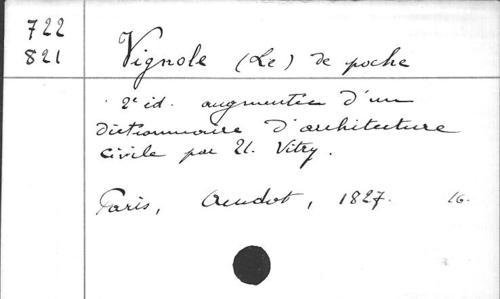 722
821
Vignole (Le) de poche
2e éd. augmentée d'un
dictionnaire d'architecture
civile par U. Vitry.
Paris, Audot, 1827. 16.